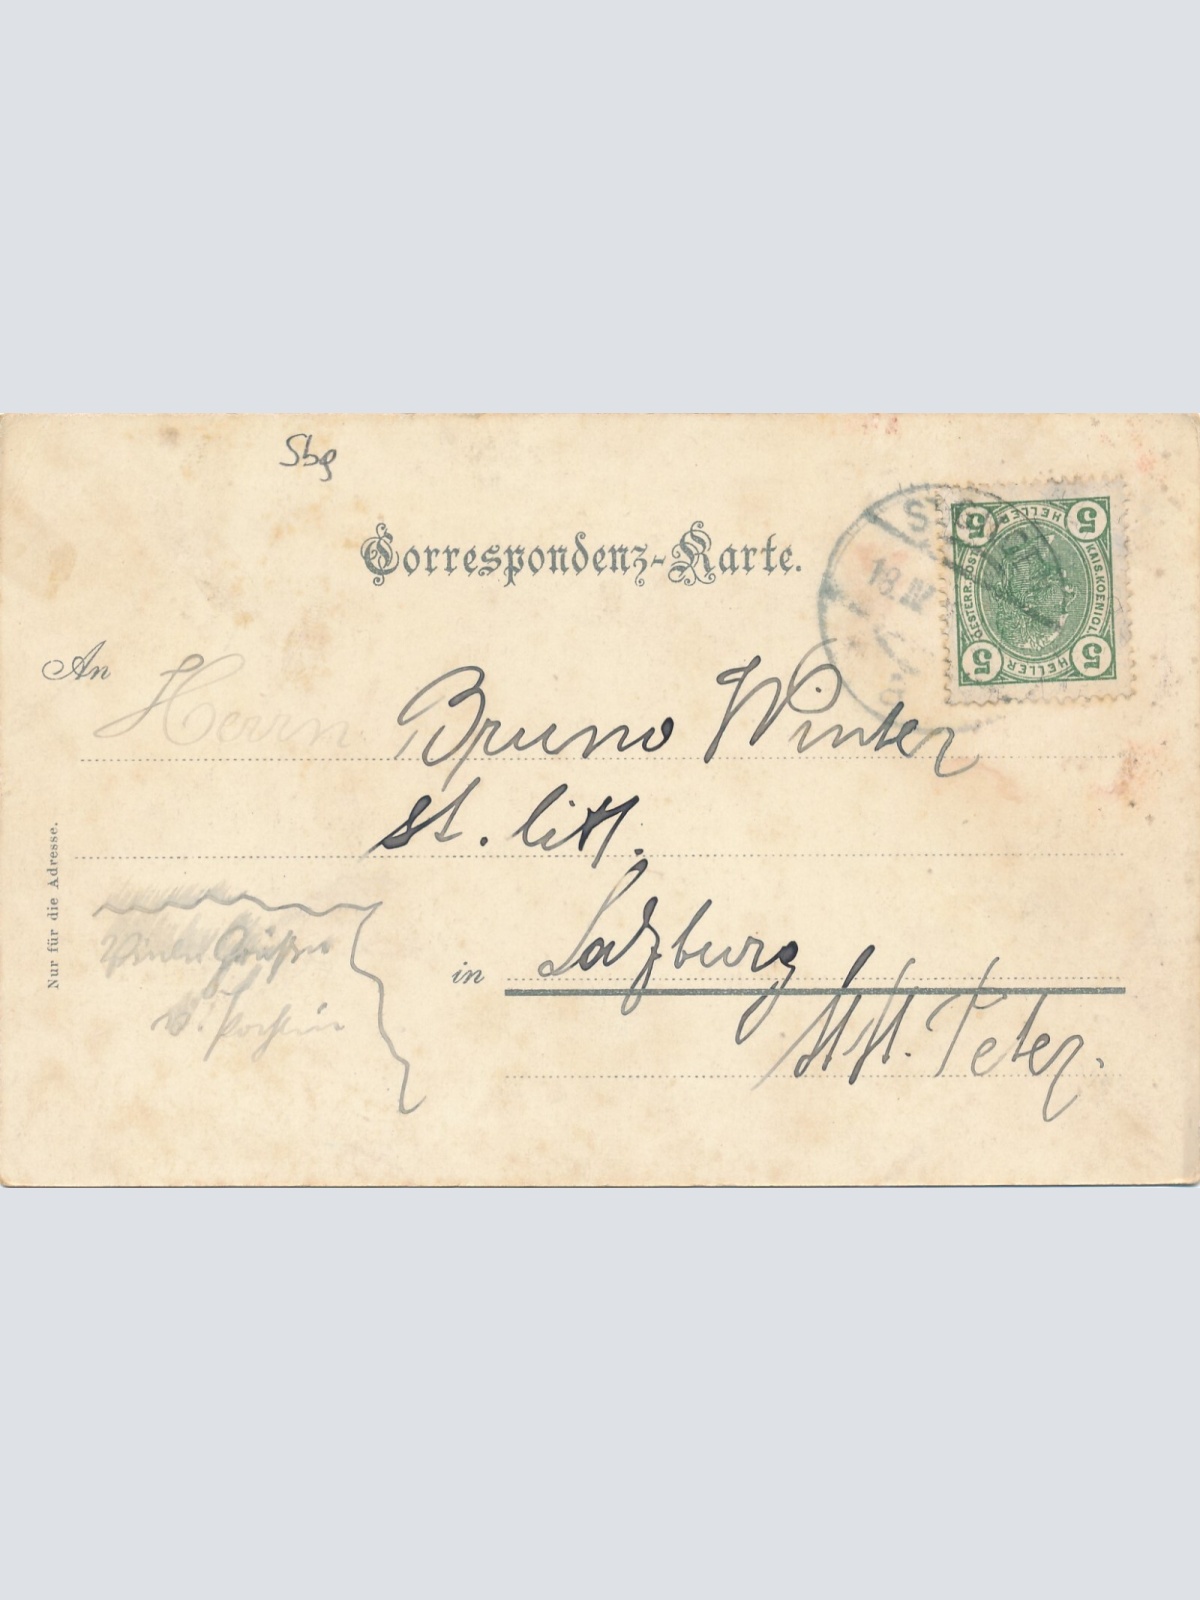 Sbg
Correspondenz-Karte.
5 HELLER 5
KAIS.KOENIGL.
OESTERR.POST
5 HELLER 5
18.IV
An Herrn Bruno Winter
st. litt.
in Salzburg
St. Peter.
Viele Grüße
Nur für die Adresse.